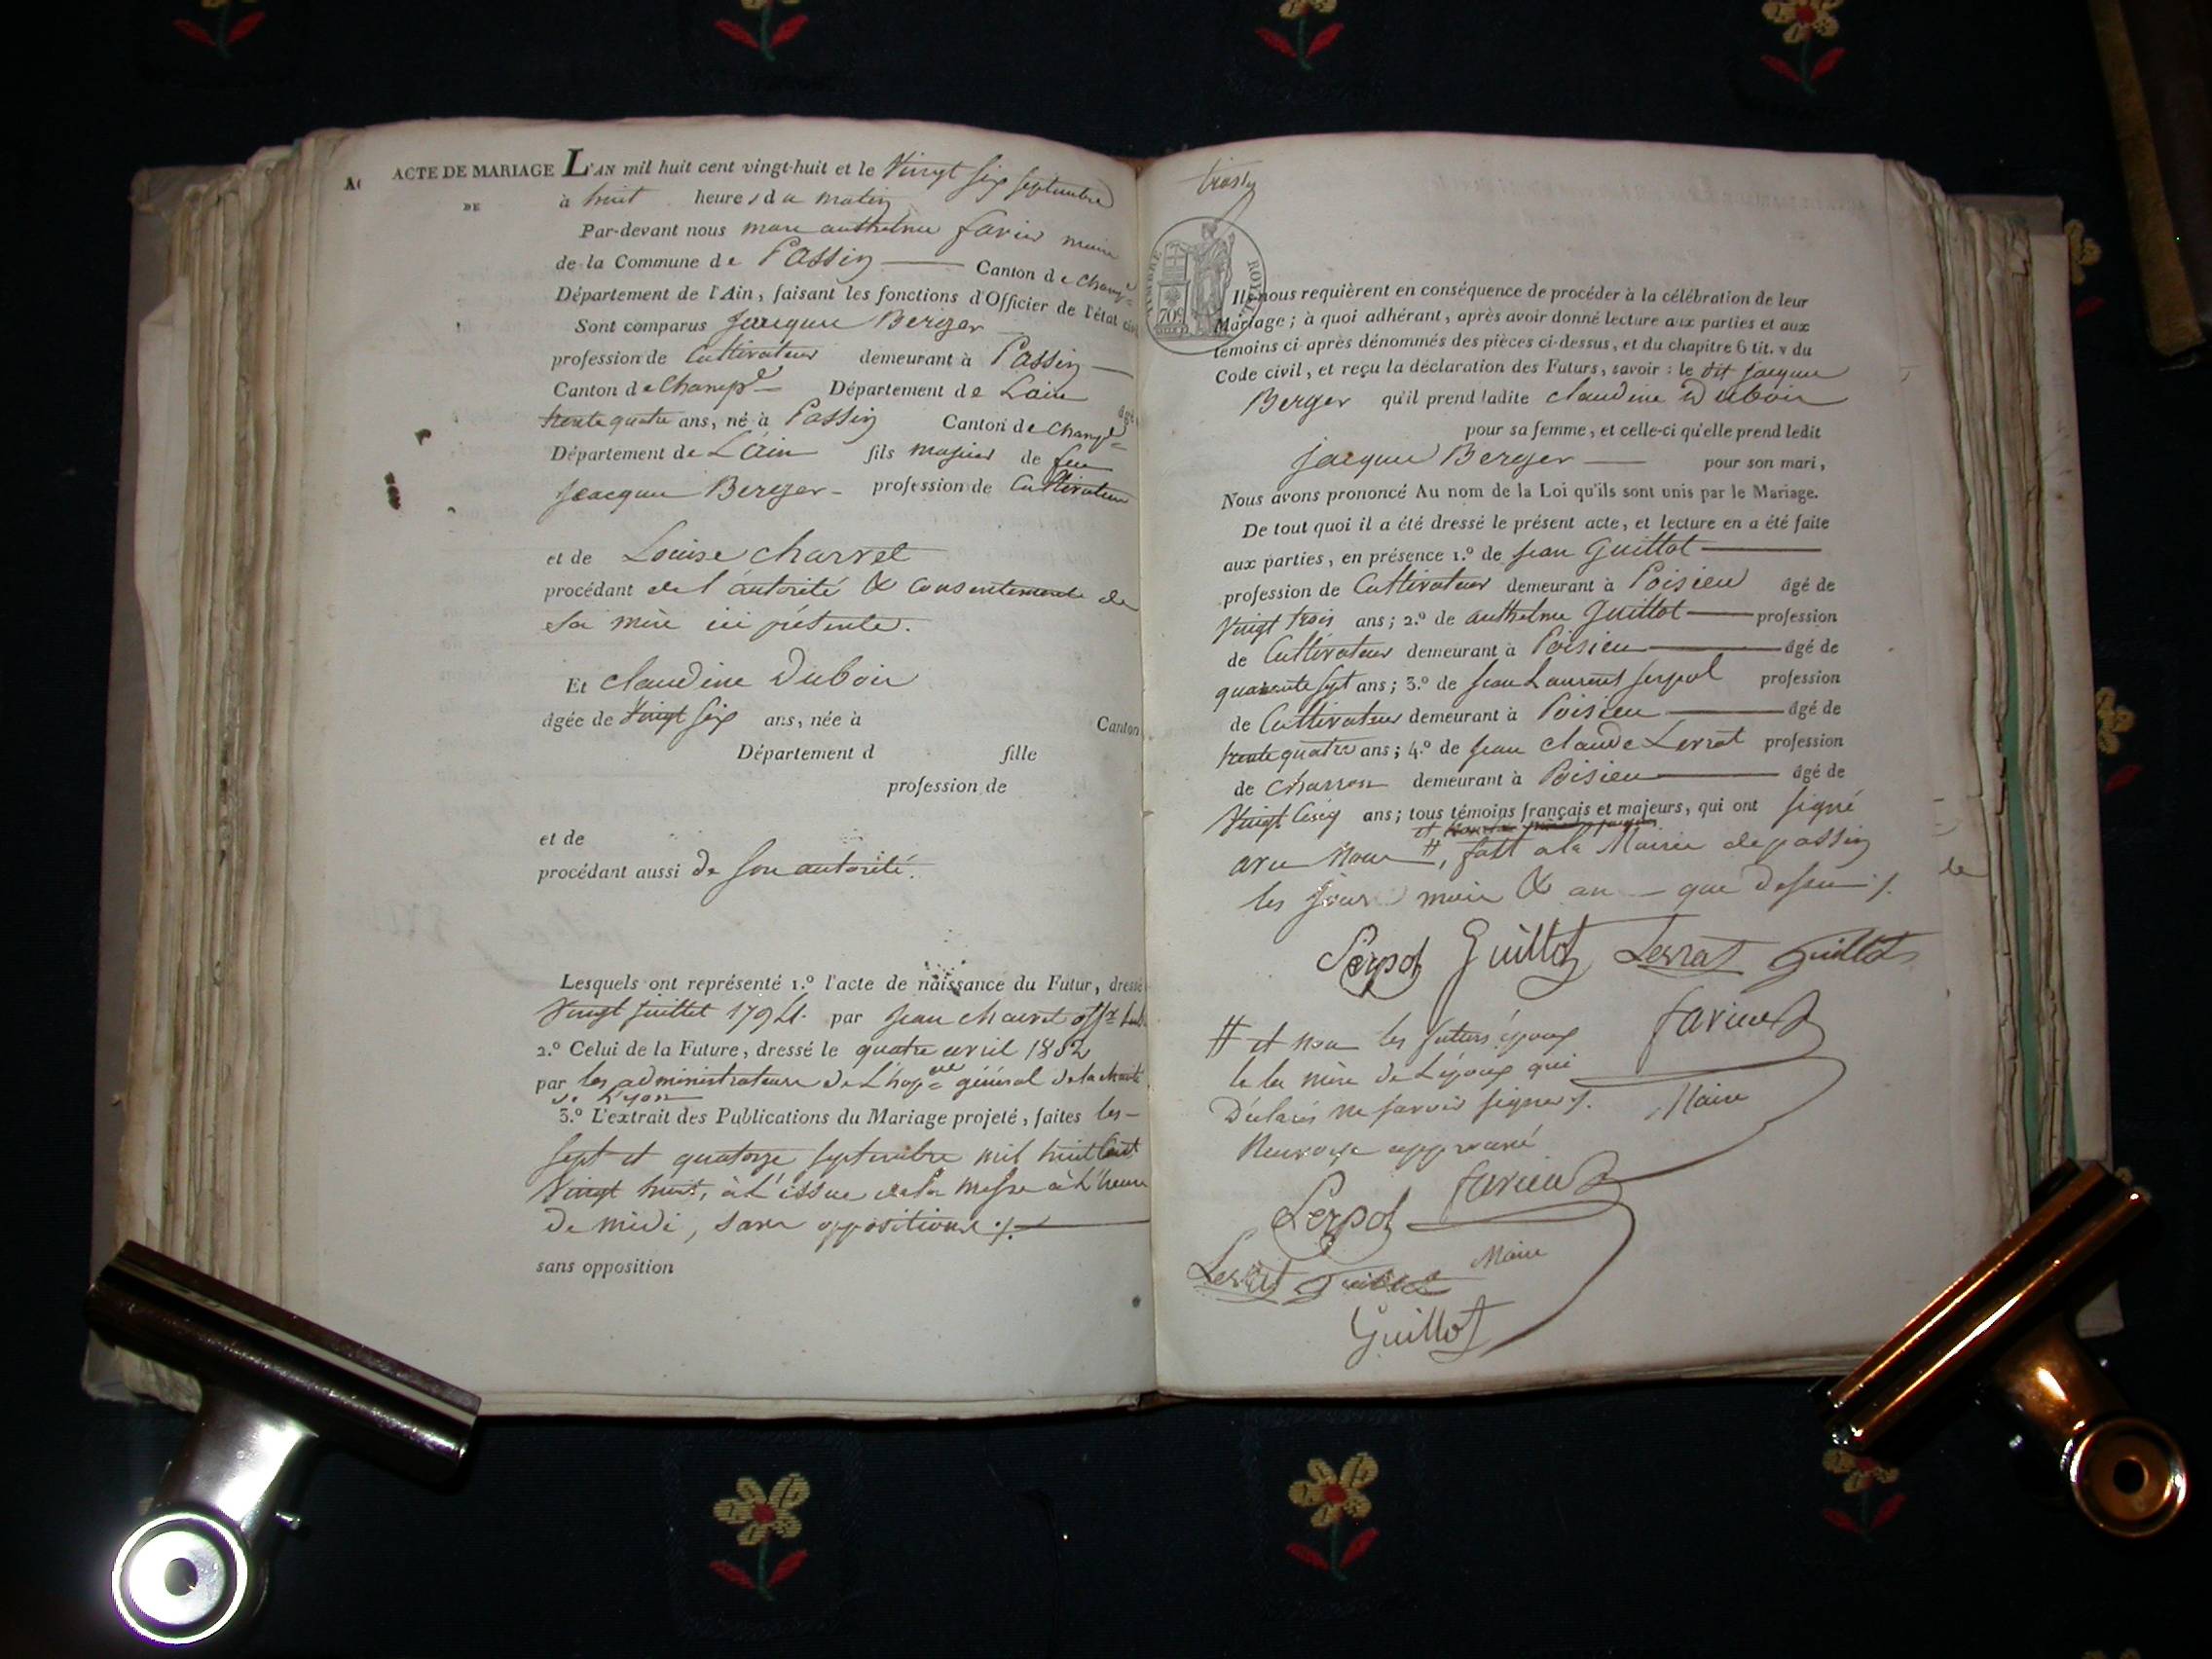 ACTE DE MARIAGE L'AN mil huit cent vingt-huit et le Vingt six septembre
DE
à huit heures du matin
Par-devant nous marc anthelme favier maire
de la Commune de Passin Canton de Champ.e
Département de l'Ain, faisant les fonctions d'Officier de l'état
Sont comparus Jacques Berger
profession de Cultivateur demeurant à Passin
Canton de Champ.e Département de Lain
âgé
trente quatre ans, né à Passin Canton de Champ.e
Département de L'ain fils majeur de feu
Jacques Berger profession de Cultivateur
et de Louise charvet
procédant de l'autorité & consentement de
sa mère ici présente.
Et claudine Dubois
âgée de Vingt six ans, née à Canton
Département d fille
profession de
et de
procédant aussi de son autorité.
Lesquels ont représenté 1.º l'acte de naissance du Futur, dressé
Vingt juillet 1794. par jean charvet off.r
2.º Celui de la Future, dressé le quatre avril 1802
par les administrateurs de L'hop.al général de la charité
de Lyon
3.º L'extrait des Publications du Mariage projeté, faites les
sept et quatorze septembre mil huit Cent
Vingt huit, à L'issue de la messe à L'heure
de midi, sans oppositions ./.
sans opposition
TIMBRE ROYAL
70c
Ils nous requièrent en conséquence de procéder à la célébration de leur
Mariage; à quoi adhérant, après avoir donné lecture aux parties et aux
témoins ci-après dénommés des pièces ci-dessus, et du chapitre 6 tit. v du
Code civil, et reçu la déclaration des Futurs, savoir: le dit jacques
Berger qu'il prend ladite claudine Dubois
pour sa femme, et celle-ci qu'elle prend ledit
jacques Berger pour son mari,
Nous avons prononcé Au nom de la Loi qu'ils sont unis par le Mariage.
De tout quoi il a été dressé le présent acte, et lecture en a été faite
aux parties, en présence 1.º de jean Guillot
profession de Cultivateur demeurant à Poisieu âgé de
Vingt trois ans; 2.º de anthelme Guillot profession
de Cultivateur demeurant à Poisieu âgé de
quarante sept ans; 3.º de jean Laurent serpol profession
de Cultivateur demeurant à Poisieu âgé de
trente quatre ans; 4.º de jean claude Lerrat profession
de charron demeurant à Poisieu âgé de
Vingt Cinq ans; tous témoins français et majeurs, qui ont signé
avec nous #, fait a la Mairie de passin
les jour mois & an que dessus ./.
Serpol Guillot Lerrat Guillot
# et non les futurs époux favier
& la mère de L'époux qui
Déclarés ne savoir signer ./. Maire
Renvoye approuvé
favier
Serpol
Maire
Lerrat Guillot
Guillot